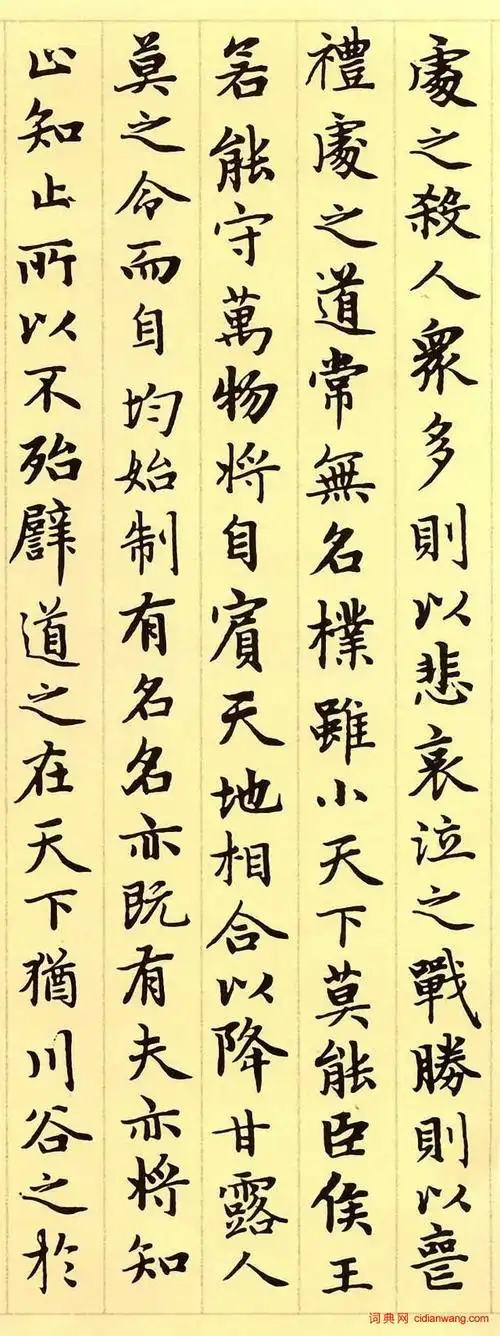 處之殺人衆多則以悲哀泣之戰勝則以喪
禮處之道常無名樸雖小天下莫能臣侯王
若能守萬物將自賓天地相合以降甘露人
莫之令而自均始制有名名亦既有夫亦將知
止知止所以不殆譬道之在天下猶川谷之於
词典网 cidianwang.com